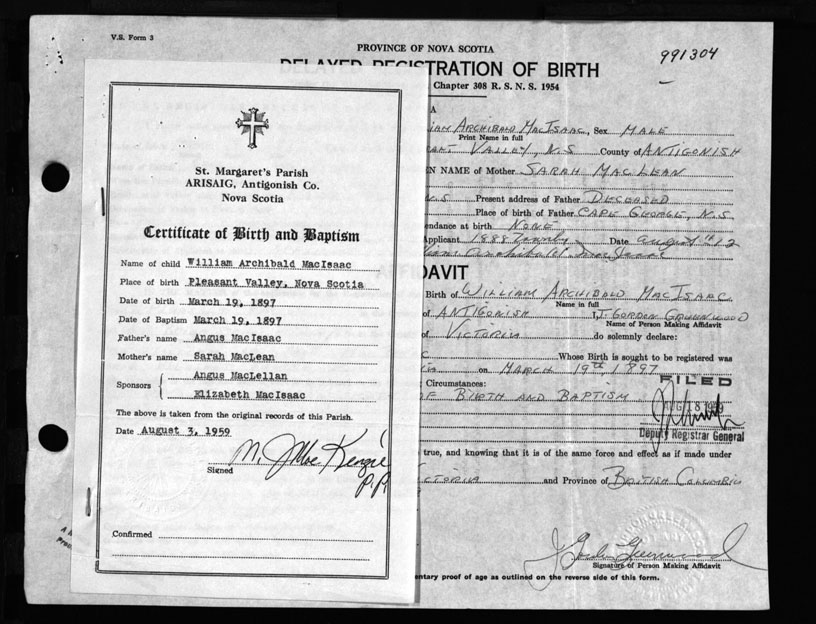 V.S. Form 3
PROVINCE OF NOVA SCOTIA
991304
DELAYED REGISTRATION OF BIRTH
Chapter 308 R. S. N. S. 1954
St. Margaret's Parish
ARISAIG, Antigonish Co.
Nova Scotia
Certificate of Birth and Baptism
Name of child William Archibald MacIsaac
Place of birth Pleasant Valley, Nova Scotia
Date of birth March 19, 1897
Date of Baptism March 19, 1897
Father's name Angus MacIsaac
Mother's name Sarah MacLean
Sponsors Angus MacLellan
Elizabeth MacIsaac
The above is taken from the original records of this Parish.
Date August 3, 1959
Signed
P.P.
Confirmed
A
IAM ARCHIBALD MACISAAC, Sex MALE
Print Name in full
VALLEY, N.S County of ANTIGONISH
EN NAME of Mother SARAH MACLEAN
N.S Present address of Father DECEASED
Place of birth of Father CAPE GEORGE, N.S.
endance at birth NONE
Applicant Date August 12
FIDAVIT
Birth of WILLIAM ARCHIBALD MACISAAC
Name in full
of ANTIGONISH I, J. GORDON GREENWOOD
Name of Person Making Affidavit
of VICTORIA do solemnly declare:
Whose Birth is sought to be registered was
on MARCH 19th 1897
Circumstances:
FILED
OF BIRTH AND BAPTISM
AUG 18 1959
Deputy Registrar General
true, and knowing that it is of the same force and effect as if made under
VICTORIA and Province of BRITISH COLUMBIA
Signature of Person Making Affidavit
entary proof of age as outlined on the reverse side of this form.